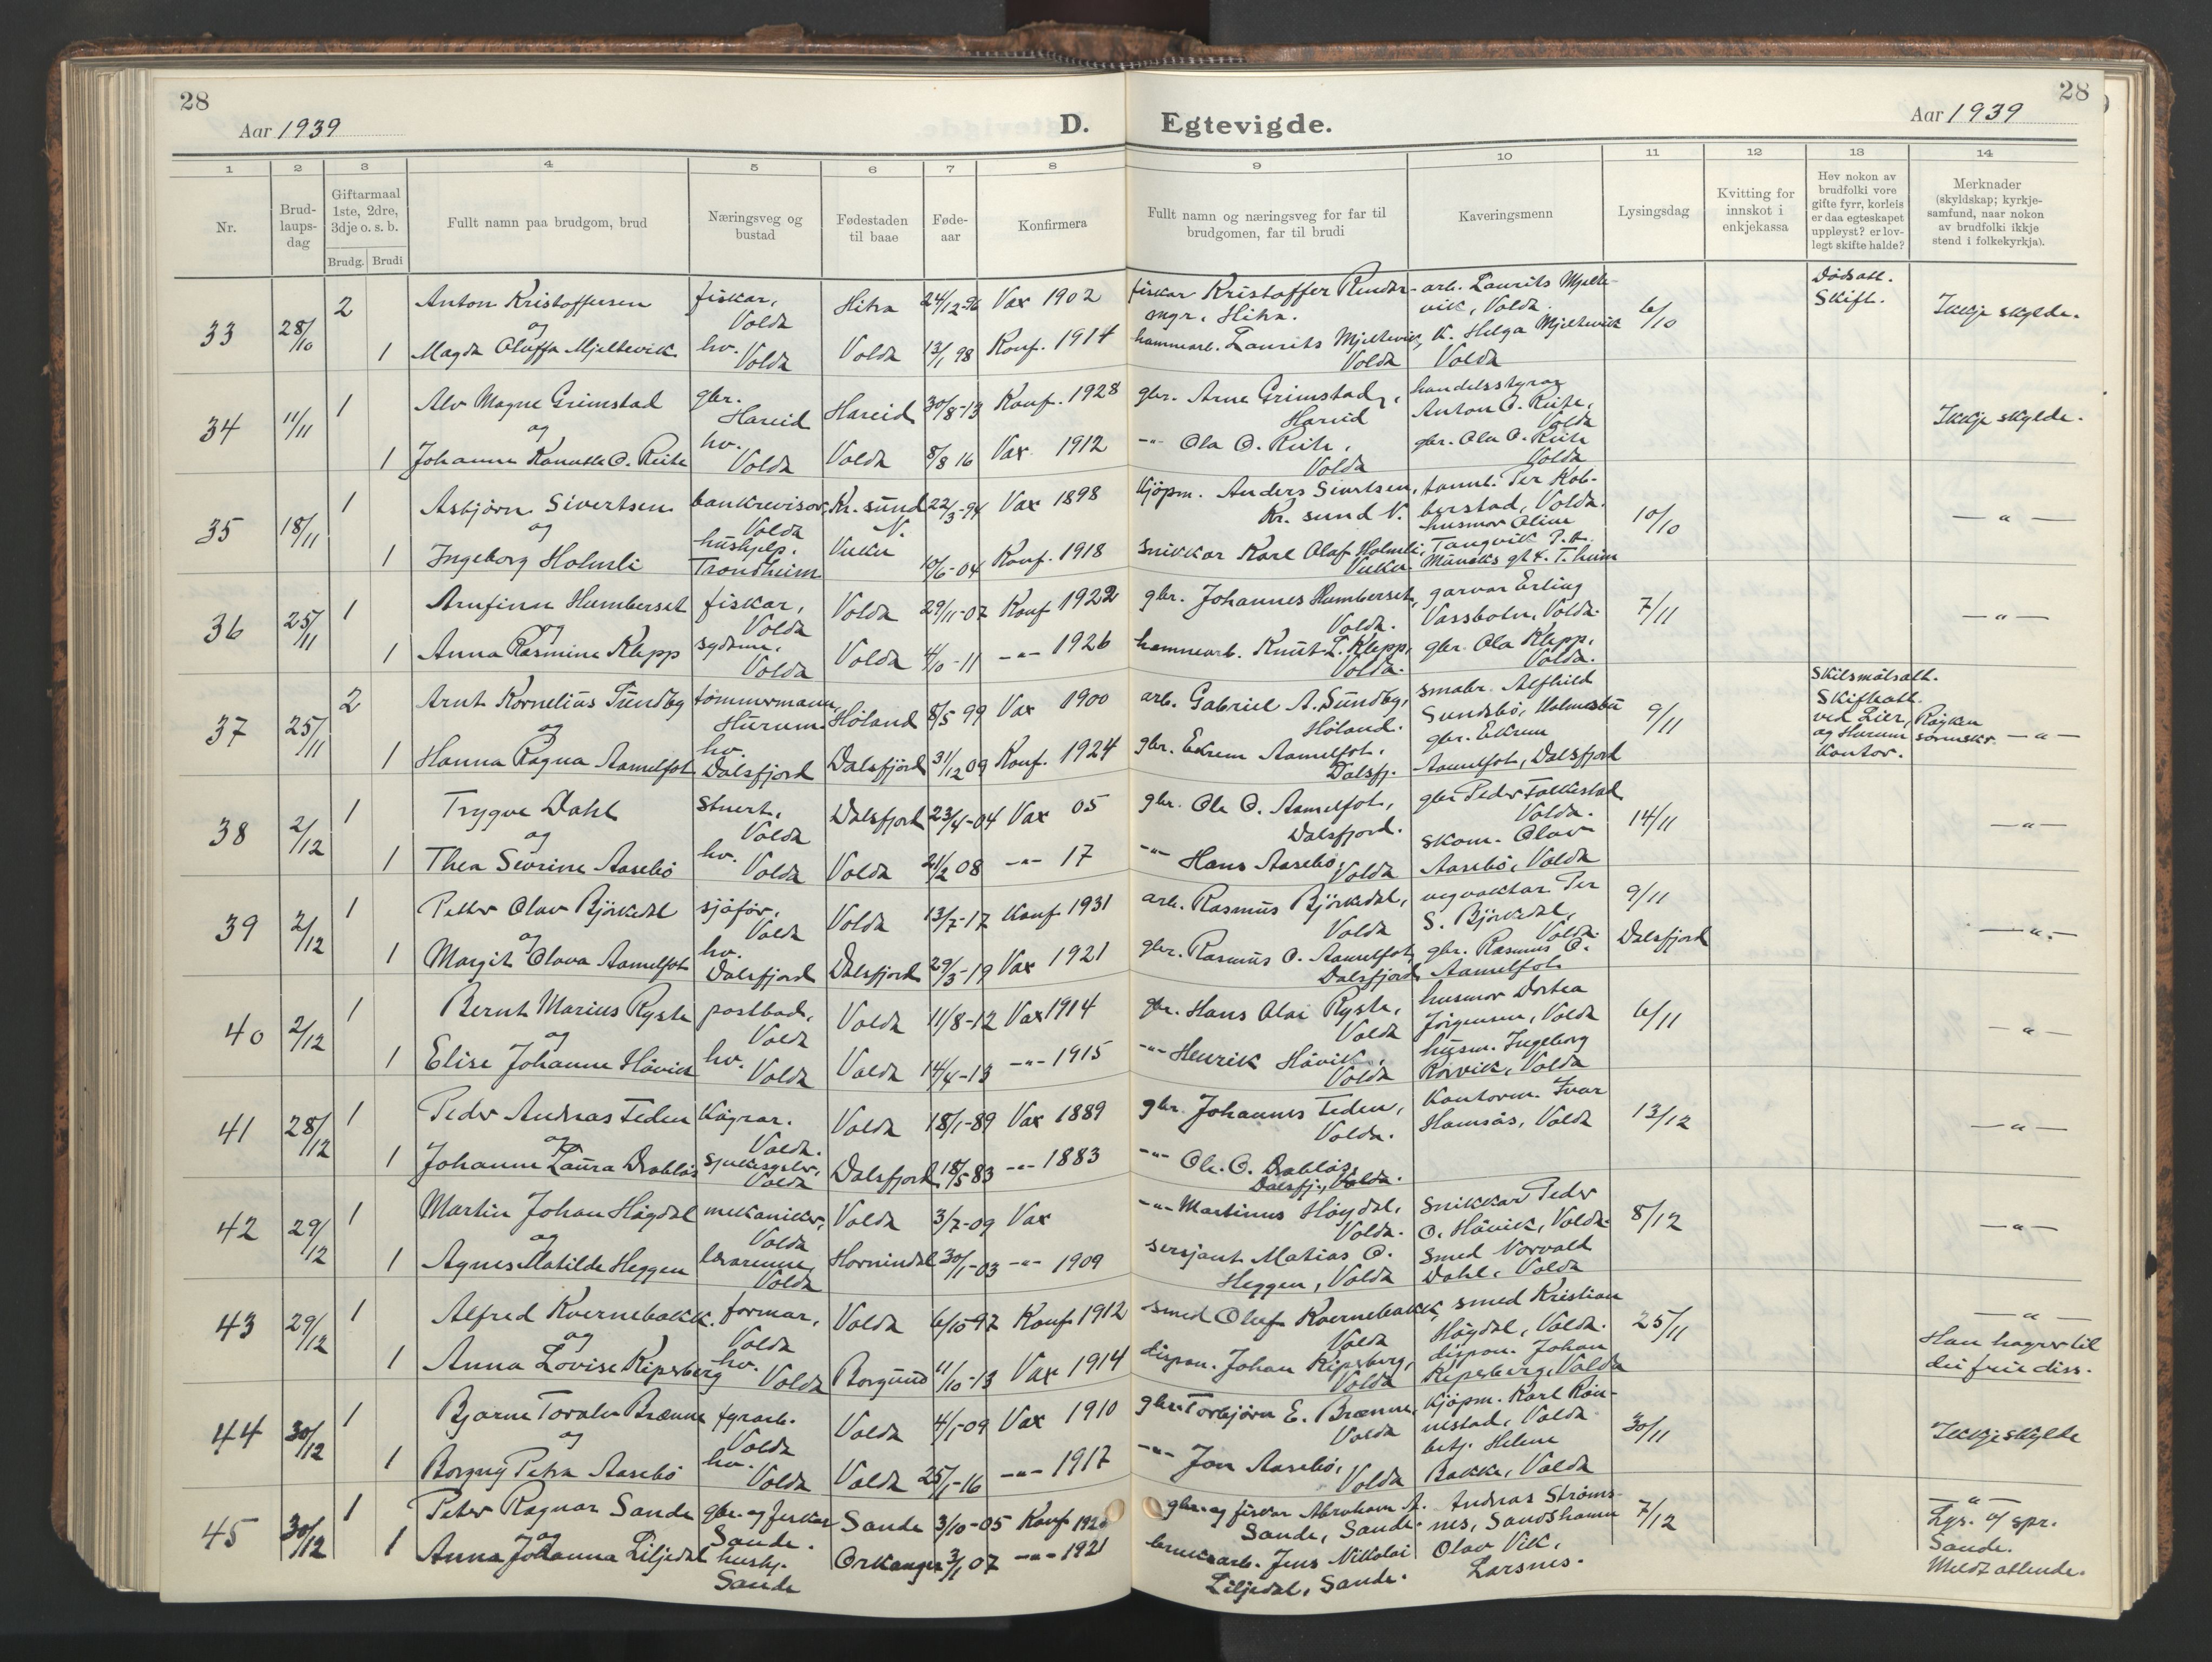 28
28
Aar 1939
D. Egtevigde.
Aar 1939
1 2 3 4 5 6 7 8 9 10 11 12 13 14
Nr.
Brud-
laups-
dag
Giftarmaal
1ste, 2dre,
3dje o. s. b.
Brudg. Brudi
Fullt namn paa brudgom, brud
Næringsveg og
bustad
Fødestaden
til baae
Føde-
aar
Konfirmera
Fullt namn og næringsveg for far til
brudgomen, far til brudi
Kaveringsmenn
Lysingsdag
Kvitting for
innskot i
enkjekassa
Hev nokon av
brudfolki vore
gifte fyrr, korleis
er daa egteskapet
uppløyst? er lov-
legt skifte halde?
Merknader
(skyldskap; kyrkje-
samfund, naar nokon
av brudfolki ikkje
stend i folkekyrkja).
33 28/10 2 Anton Kristoffersen fiskar, Volda Hitra 24/12-96 Vax 1902 fiskar Kristoffer arb. Laurits Mjelte-
vik, Volda 6/10 Dødsatt. Skift. Ikkje skylde.
og
1 Magda Oluffa Mjeltevik hv. Volda Volda 13/1 98 Konf. 1914 hamnearb. Laurits Mjeltevik, Volda K. Helga Mjeltevik Volda
34 11/11 1 Alv Magne Grimstad gbr. Hareid Hareid 30/8-13 Konf. 1928 gbr. Arne Grimstad, Hareid handelsstyrar Anton O. Reite, Volda Ikkje skylde.
og
1 Johanne O. Reite hv. Volda Volda 8/8 16 Vax 1912 -"- Ola O. Reite, Volda gbr. Ola O. Reite Volda
35 18/11 1 Asbjørn Sivertsen bankrevisor, Volda Kr. sund N. 22/3-94 Vax 1898 Kjöpm. Anders Sivertsen, Kr. sund N. Per Kob-
berstad, Volda. 10/10 -"-
og
1 Ingeborg Holmli hushjelp. Trondheim 10/6-04 Konf. 1918 Snikkar Karl Olaf Holmli, husmor Oline Tangvik T.heim
36 25/11 1 Arnfinn Humberset fiskar, Volda Volda 29/11-07 Konf 1922 gbr. Johannes Humberset, Volda. garvar Erling Vassbotn, Volda. 7/11 -"-
og
1 Anna Rasmine Klepp sydame, Volda Volda -11 -"- 1926 hamnearb. Knut L. Klepp, Volda. gbr. Ola Klepp, Volda.
37 25/11 2 Arnt Kornelius Sundby tömmermann, Hurum Höland 8/5 99 Vax 1900 arb. Gabriel A. Sundby, Höland. smabr. Alfhild Sundsbö, Holmsbu 9/11 Skilsmålsatt.
Skifteatt.
ved Lier, Röyken
og Hurum sorenskr.
kontor. -"-
og
1 Hanna Ragna Aamelfot hv. Dalsfjord Dalsfjord 31/12 09 Konf. 1924 gbr. Edrem Aamelfot, Dalsfj. gbr. Edrem Aamelfot, Dalsfjord
38 2/12 1 Trygve Dahl stuert, Volda Dalsfjord 23/4-04 Vax 05 gbr. Ole O. Aamelfot, Dalsfjord. gbr Peder Folkestad Volda. 14/11 -"-
og
1 Thea Severine Aasebö hv. Volda Volda 21/2 08 -"- 17 -"- Hans Aasebö, Volda skom. Olav Aasebö, Volda
39 2/12 1 Petter Olav Björkedal sjåför, Volda Volda 13/7-17 Konf. 1931 arb. Rasmus Björkedal, Volda vegvaktar Per S. Björkedal, Volda. 9/11 -"-
og
1 Margit Olava Aamelfot hv. Dalsfjord Dalsfjord 29/3-19 Vax 1921 gbr. Rasmus O. Aamelfot, Dalsfjord gbr. Rasmus O. Aamelfot Dalsfjord
40 2/12 1 Bernt Marius Ryste postbod, Volda Volda 11/8-12 Vax 1914 gbr. Hans Olai Ryste, Volda husmor Dortea Jörgensen, Volda 6/11 -"-
og
1 Elise Johanne Håvik hv. Volda Volda 14/4-13 -"- 1915 -"- Henrik Håvik, Volda husm. Ingeborg Rörvik, Volda
41 28/12 1 Peder Andreas Feden Volda. Volda 18/1-89 Vax 1889 gbr. Johannes Feden, Volda. Kontorm. Ivar Hamsås, Volda 13/12 -"-
og
1 Johanne Laura Drabløs sjukesyster, Volda Dalsfjord 18/5 83 -"- 1883 -"- Ole O. Drabløs, Dalsfj., Volda.
42 29/12 1 Martin Johan Högdal mekaniker, Volda Volda 3/7-09 Vax -"- Martinus Högdal, Volda. Snikkar Peder O. Håvik, Volda. 8/12 -"-
og
1 Agnes Matilde Heggen lærarinne, Volda Hornindal 30/1-03 -"- 1909 sersjant Matias O. Heggen, Volda Smed Norvald Dahl, Volda
43 29/12 1 Alfred Kvernebakk formar, Volda Volda 6/10 97 Konf 1912 smed Oluf Kvernebakk, Volda smed Kristian Högdal, Volda. 25/11 -"-
og
1 Anna Lovise Ripsberg hv. Volda Borgund 11/10-13 Vax 1914 dispon. Johan Ripsberg, Volda dispon. Johan Ripsberg, Volda Han høyrer til
dei frie diss.
44 30/12 1 Bjarne Torolv Brænne fyrarb. Volda Volda 4/1-09 Vax 1910 gbr. Torbjörn E. Brænne, Volda Kjöpm. Karl Rön-
nestad, Volda 30/11 Ikkje skylde
og
1 Borgny Petra Aasebö hv. Volda Volda 25/1-16 -"- 1917 -"- Jon Aasebö, Volda betj. Helene Bakke, Volda
45 30/12 1 Peter Ragnar Sande gbr. og fiskar Sande. Sande 3/10-05 Konf 192 gbr. og fiskar Abraham A. Sande, Sande. Andreas Ströms-
nes, Sandshamn 7/12 -"-
Lys. o/ spr.
Sande.
og
1 Anna Johanna Liljedal hushj. Sande Orkanger 3/1 07 -"- 1921 bruksarb. Jens Nikolai Liljedal, Sande. Olav Vik, Larsnes.